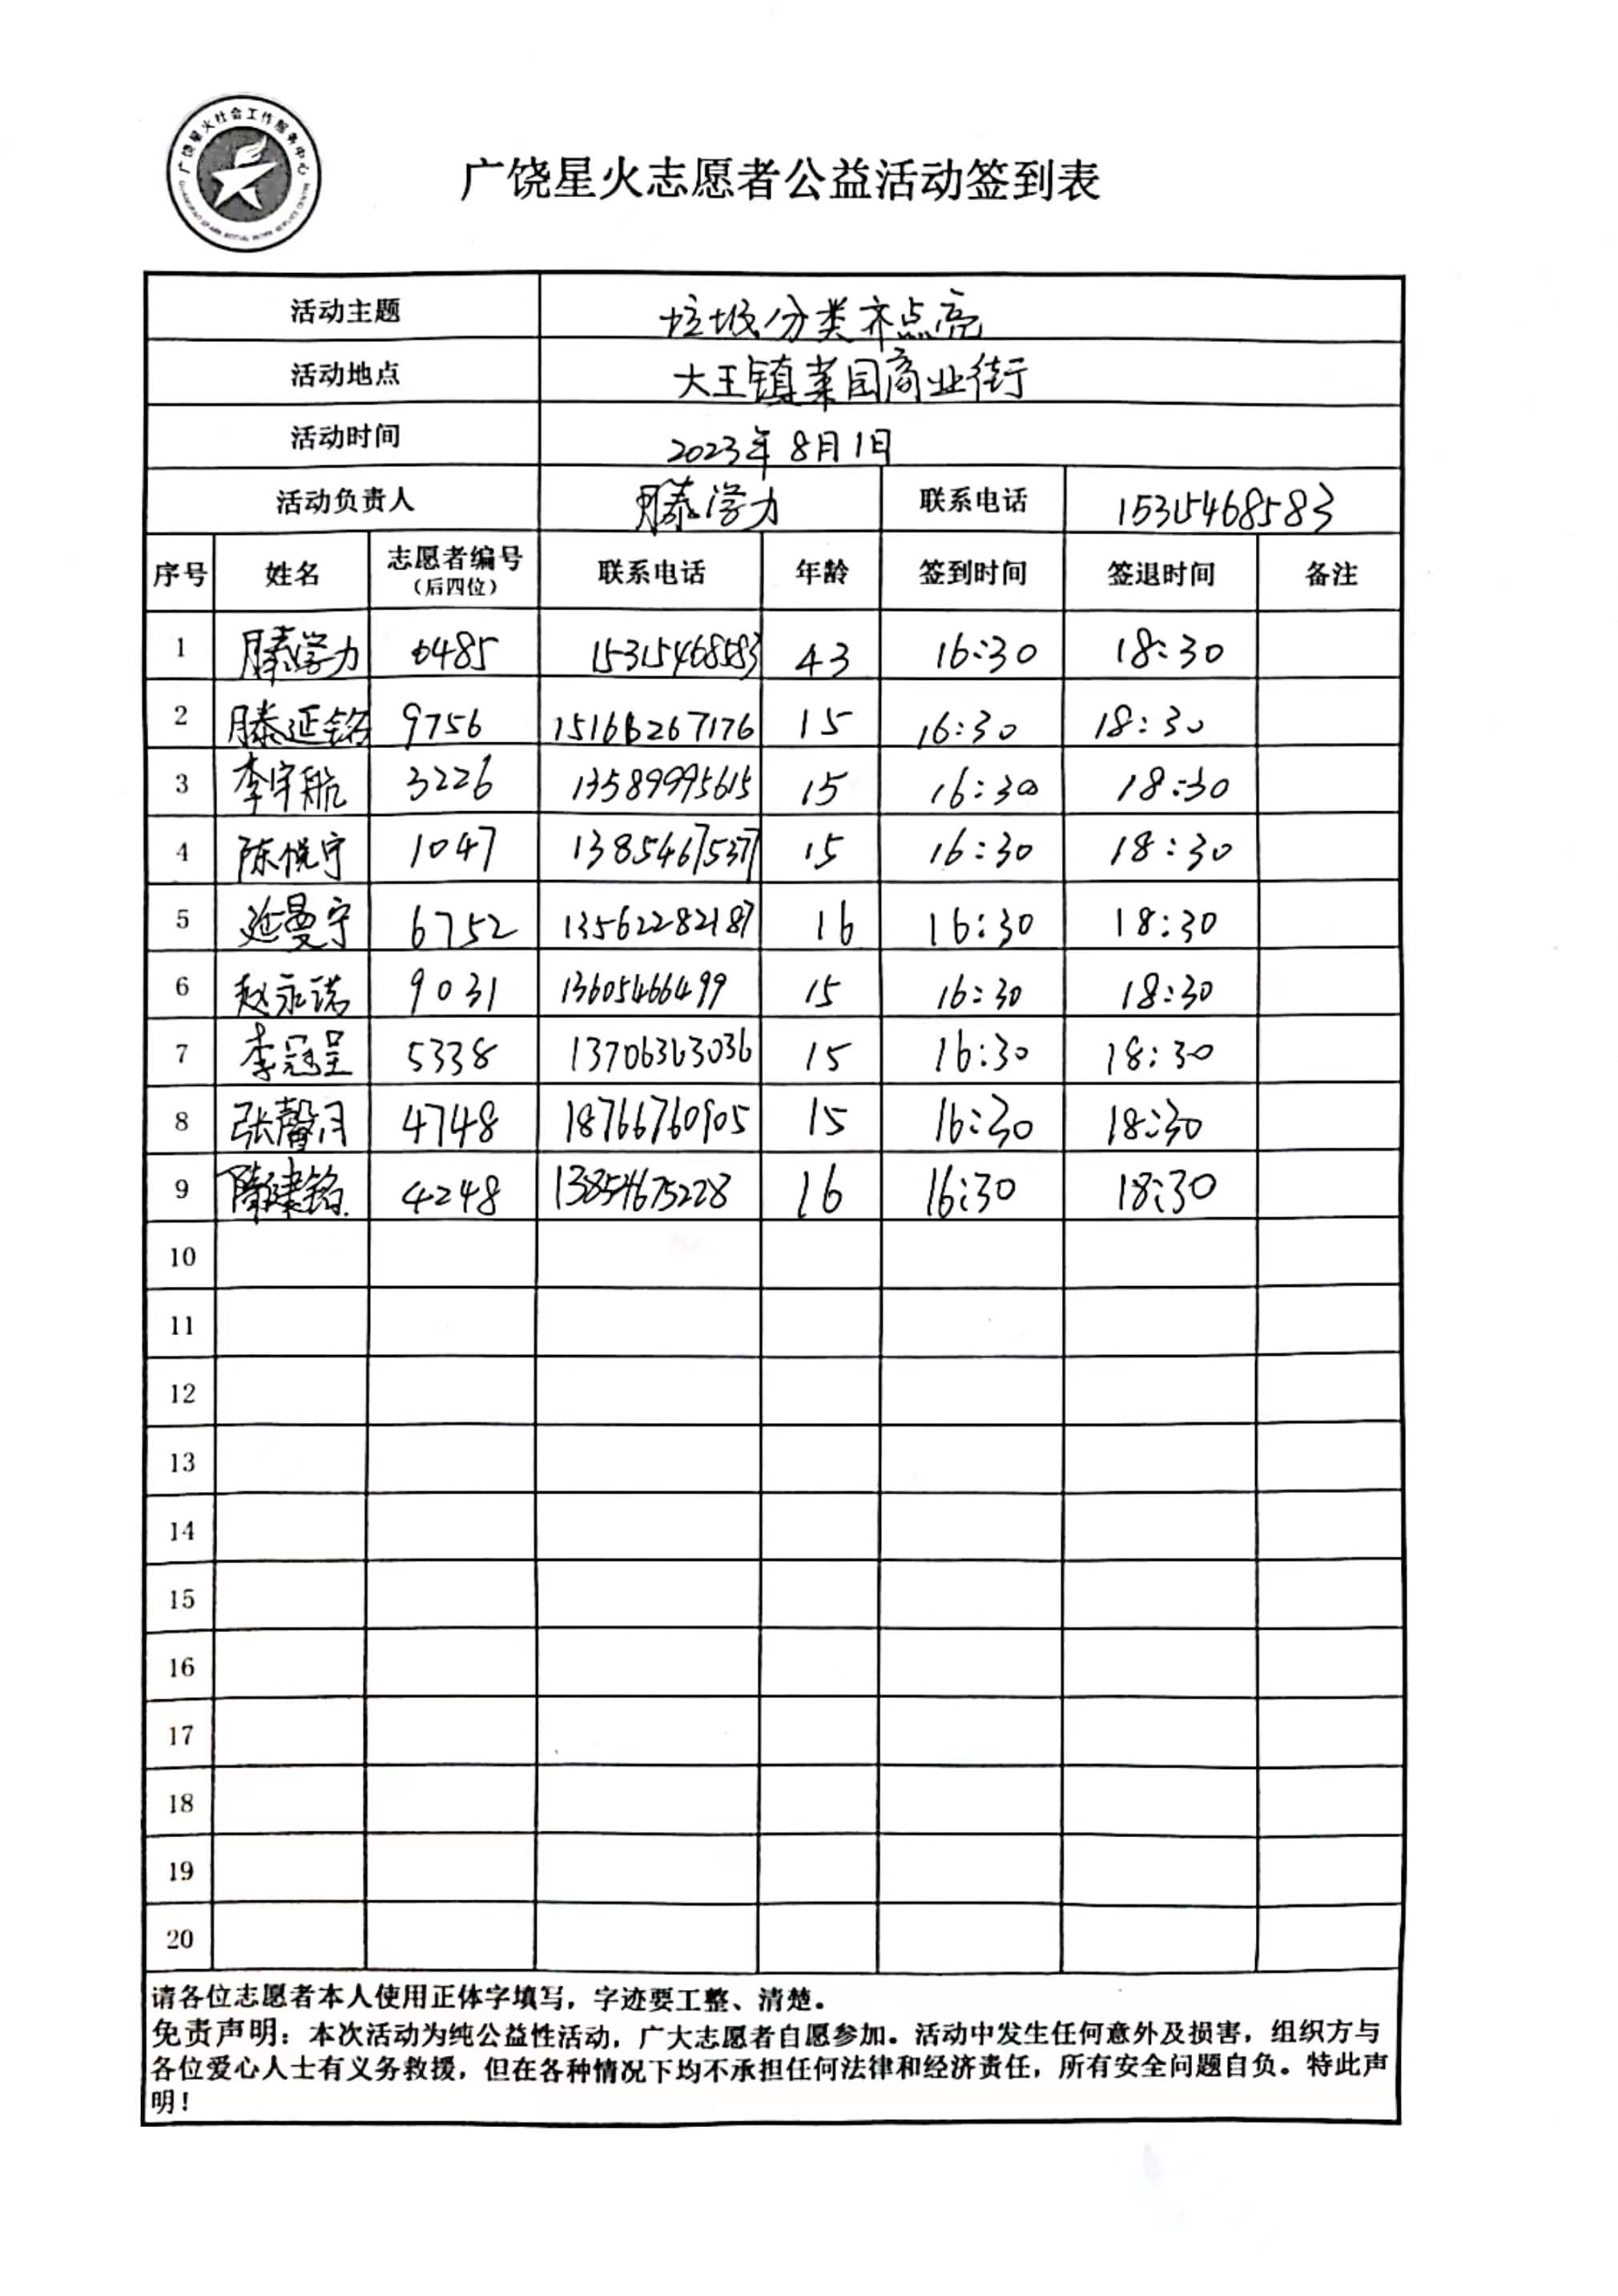 广饶星火社会工作服务中心
广饶星火志愿者公益活动签到表
活动主题 垃圾分类齐点亮
活动地点 大王镇菜园商业街
活动时间 2023年8月1日
活动负责人 滕学力 联系电话 15315468583
序号 姓名 志愿者编号（后四位） 联系电话 年龄 签到时间 签退时间 备注
1 滕学力 6485 15315468583 43 16:30 18:30
2 滕延铭 9756 15166267176 15 16:30 18:30
3 李宇航 3226 13589995615 15 16:30 18:30
4 陈悦宁 1047 13854675377 15 16:30 18:30
5 延曼宁 6752 13562282187 16 16:30 18:30
6 赵永诺 9031 13605466499 15 16:30 18:30
7 李冠呈 5338 13706363036 15 16:30 18:30
8 张馨月 4748 18766760905 15 16:30 18:30
9 隋建铭 4248 13854675228 16 16:30 18:30
10
11
12
13
14
15
16
17
18
19
20
请各位志愿者本人使用正体字填写，字迹要工整、清楚。
免责声明：本次活动为纯公益性活动，广大志愿者自愿参加。活动中发生任何意外及损害，组织方与
各位爱心人士有义务救援，但在各种情况下均不承担任何法律和经济责任，所有安全问题自负。特此声
明！